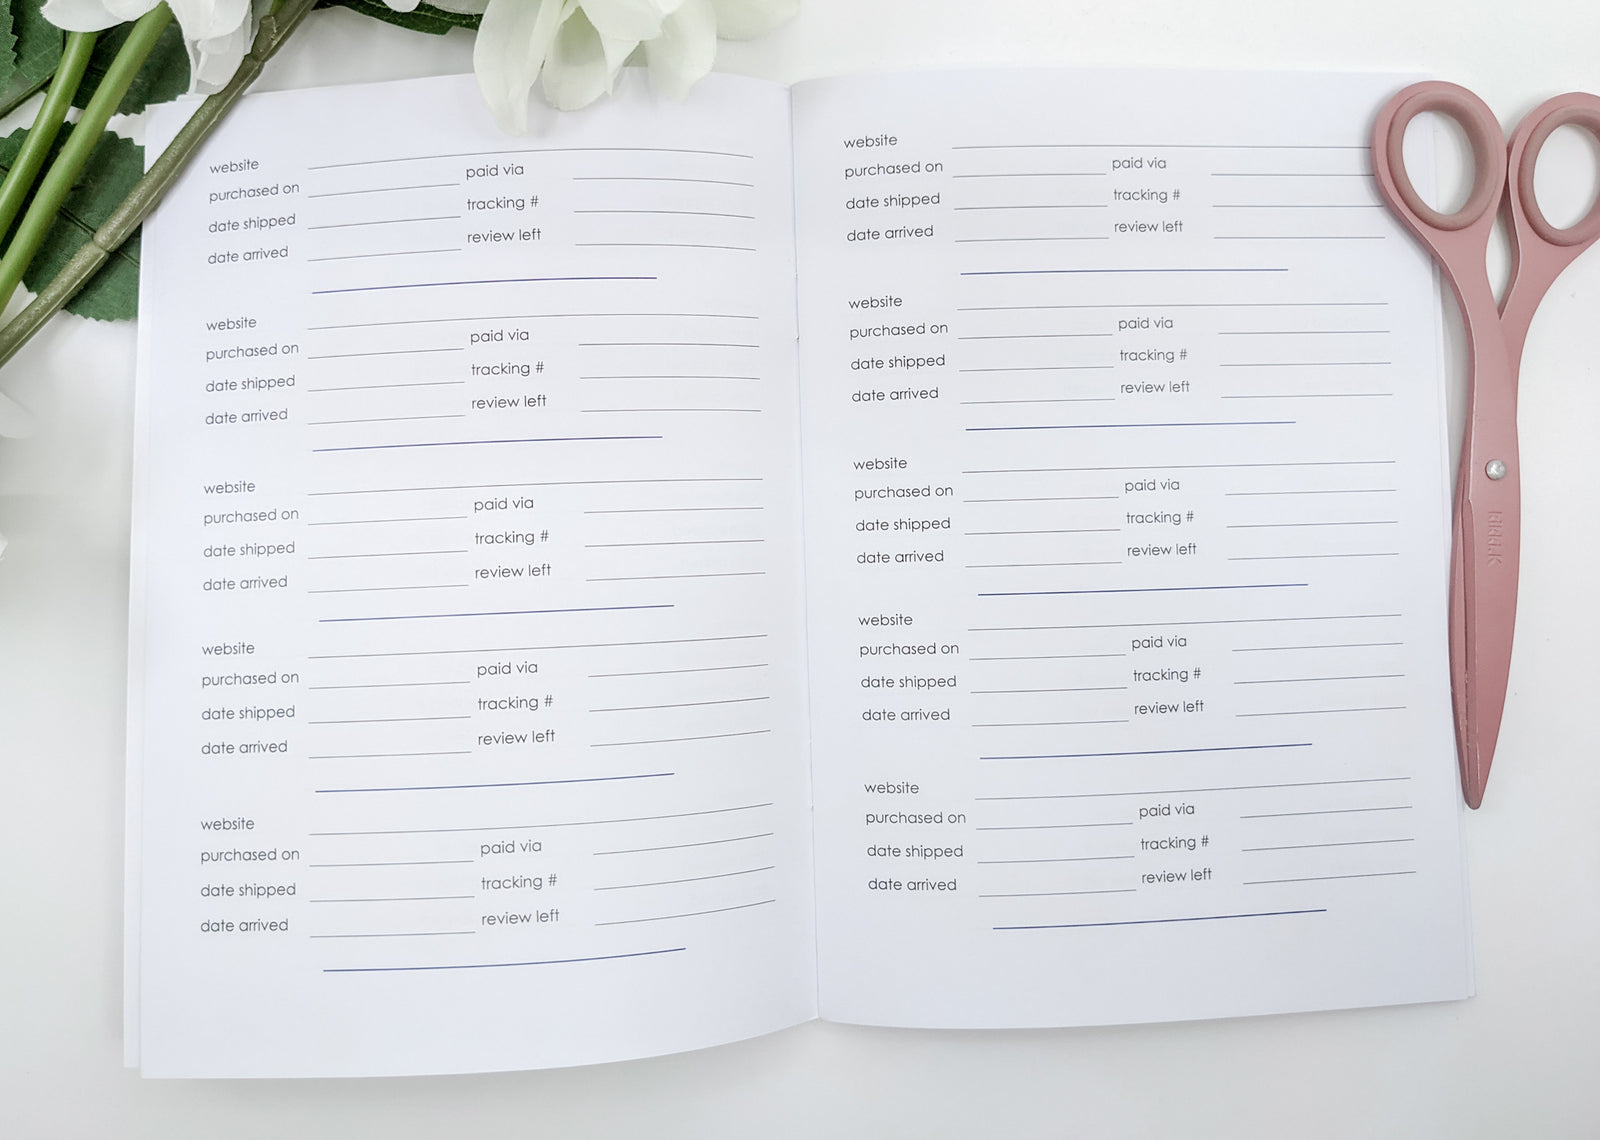 website
purchased on paid via
date shipped tracking #
date arrived review left
website
purchased on paid via
date shipped tracking #
date arrived review left
website
purchased on paid via
date shipped tracking #
date arrived review left
website
purchased on paid via
date shipped tracking #
date arrived review left
website
purchased on paid via
date shipped tracking #
date arrived review left
website
purchased on paid via
date shipped tracking #
date arrived review left
website
purchased on paid via
date shipped tracking #
date arrived review left
website
purchased on paid via
date shipped tracking #
date arrived review left
website
purchased on paid via
date shipped tracking #
date arrived review left
website
purchased on paid via
date shipped tracking #
date arrived review left
kikki.K